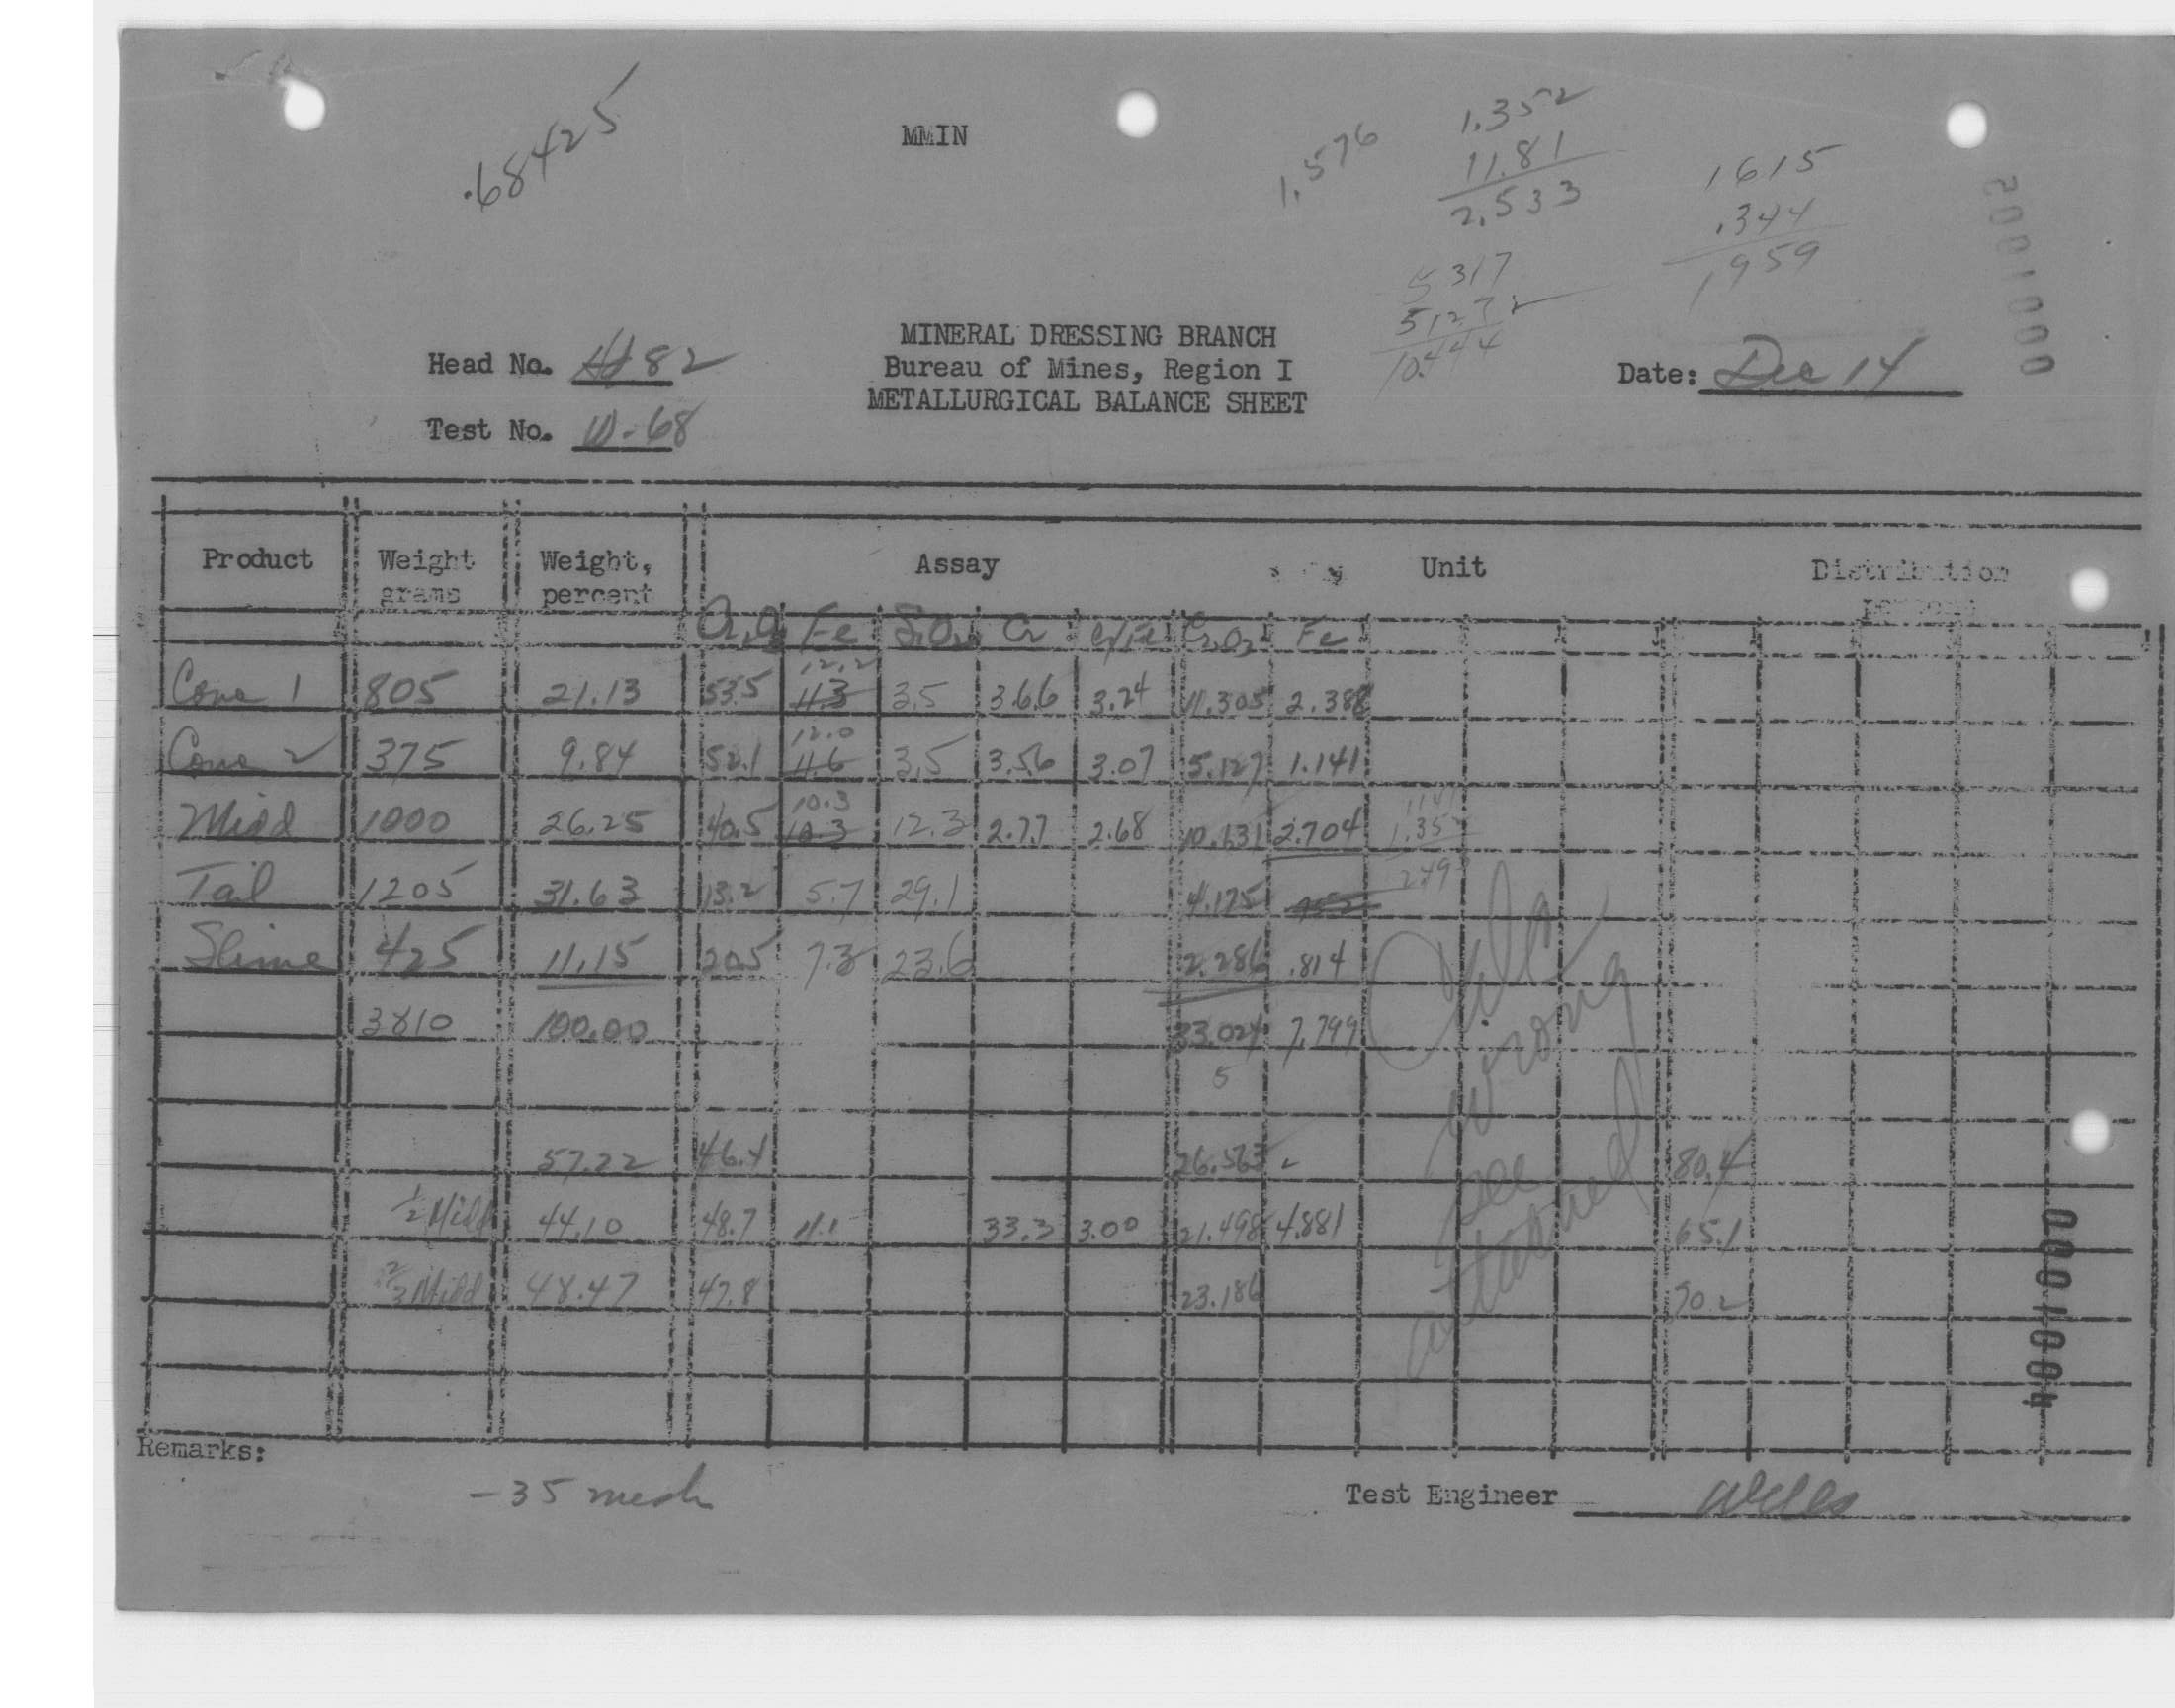 .68425
MMIN
1.576
1.352
11.81
2.533
1615
.344
1959
5317
5127
10.444
2001000
MINERAL DRESSING BRANCH
Bureau of Mines, Region I
METALLURGICAL BALANCE SHEET
Head No. 82
Test No. W-68
Date: Dec 14
Product Weight grams Weight, percent Assay Unit Distribution
Cr2O3 Fe SiO2 Cr Cr/Fe Cr2O3 Fe
12.2
Conc 1 805 21.13 53.5 11.3 3.5 36.6 3.24 11.305 2.388
12.0
Conc 2 375 9.84 52.1 11.6 3.5 35.6 3.07 5.127 1.141
10.3
Midd 1000 26.25 40.5 10.3 12.3 27.7 2.68 10.631 2.704
Tail 1205 31.63 13.2 5.7 29.1 4.175
Slime 425 11.15 20.5 7.3 23.6 2.286 .814
3810 100.00 33.024 7.799
5
57.22 46.4 26.563 80.4
1/2 Midd 44.10 48.7 11.1 33.3 3.00 21.498 4.881 65.1
2/3 Midd 48.47 47.8 23.186 70.2
wrong
see
attached
0001004
Remarks:
-35 mesh
Test Engineer Wells